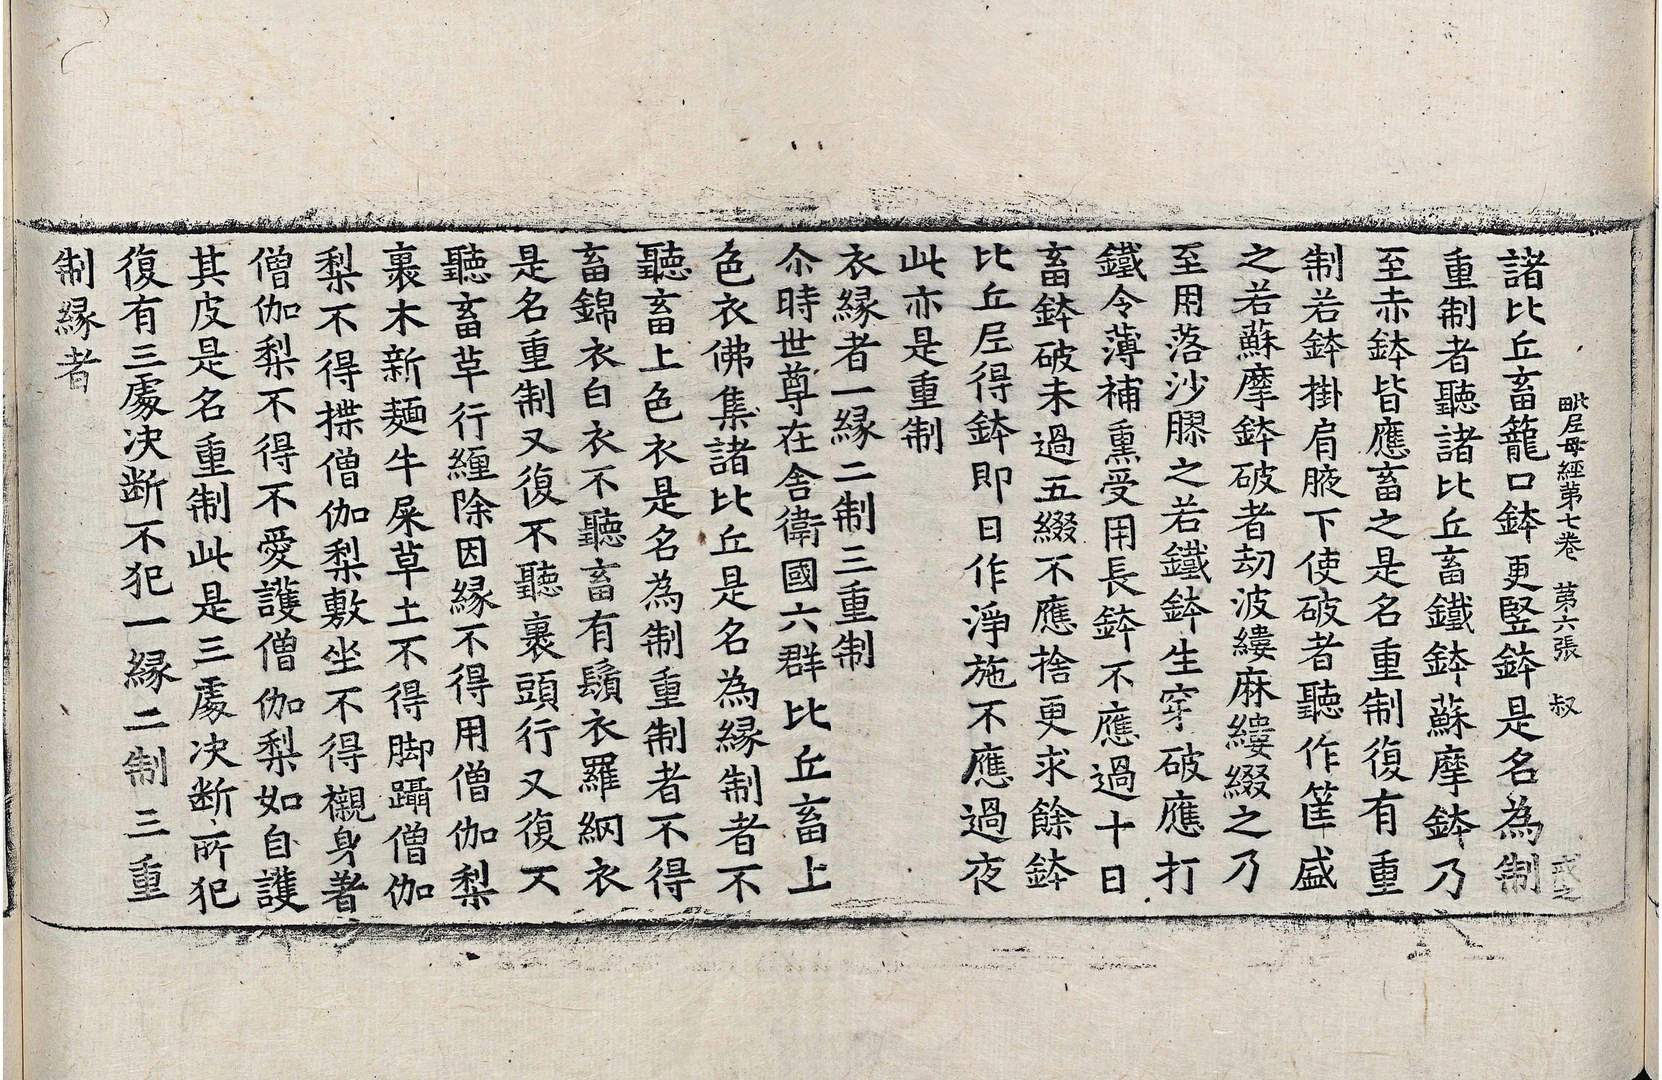 毗尼母經第七卷　第六張　叔
諸比丘畜籠口鉢更竪鉢是名為制
重制者聽諸比丘畜鐵鉢蘇摩鉢乃
至赤鉢皆應畜之是名重制復有重
制若鉢掛肩腋下使破者聽作筐盛
之若蘇摩鉢破者劫波縷麻縷綴之乃
至用落沙膠之若鐵鉢生穿破應打
鐵令薄補熏受用長鉢不應過十日
畜鉢破未過五綴不應捨更求餘鉢
比丘尼得鉢即日作淨施不應過夜
此亦是重制
衣緣者一緣二制三重制
尒時世尊在舍衛國六群比丘畜上
色衣佛集諸比丘是名為緣制者不
聽畜上色衣是名為制重制者不得
畜錦衣白衣不聽畜有鬚衣羅網衣
是名重制又復不聽裹頭行又復不
聽畜草行纏除因緣不得用僧伽梨
裹木新麺牛屎草土不得脚躡僧伽
梨不得揲僧伽梨敷坐不得襯身著
僧伽梨不得不愛護僧伽梨如自護
其皮是名重制此是三處决断所犯
復有三處决断不犯一緣二制三重
制緣者